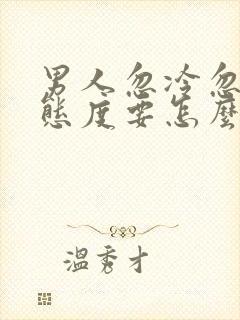 男人忽冷忽
態度要怎麼
溫秀才